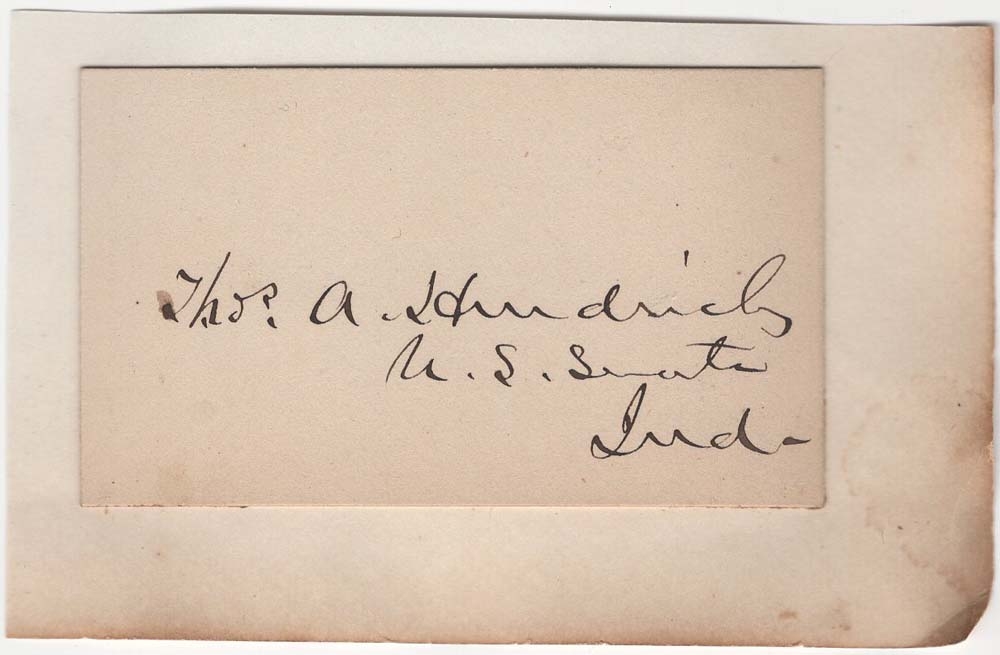 Thos. A. Hendricks
U. S. Senate
Ind.